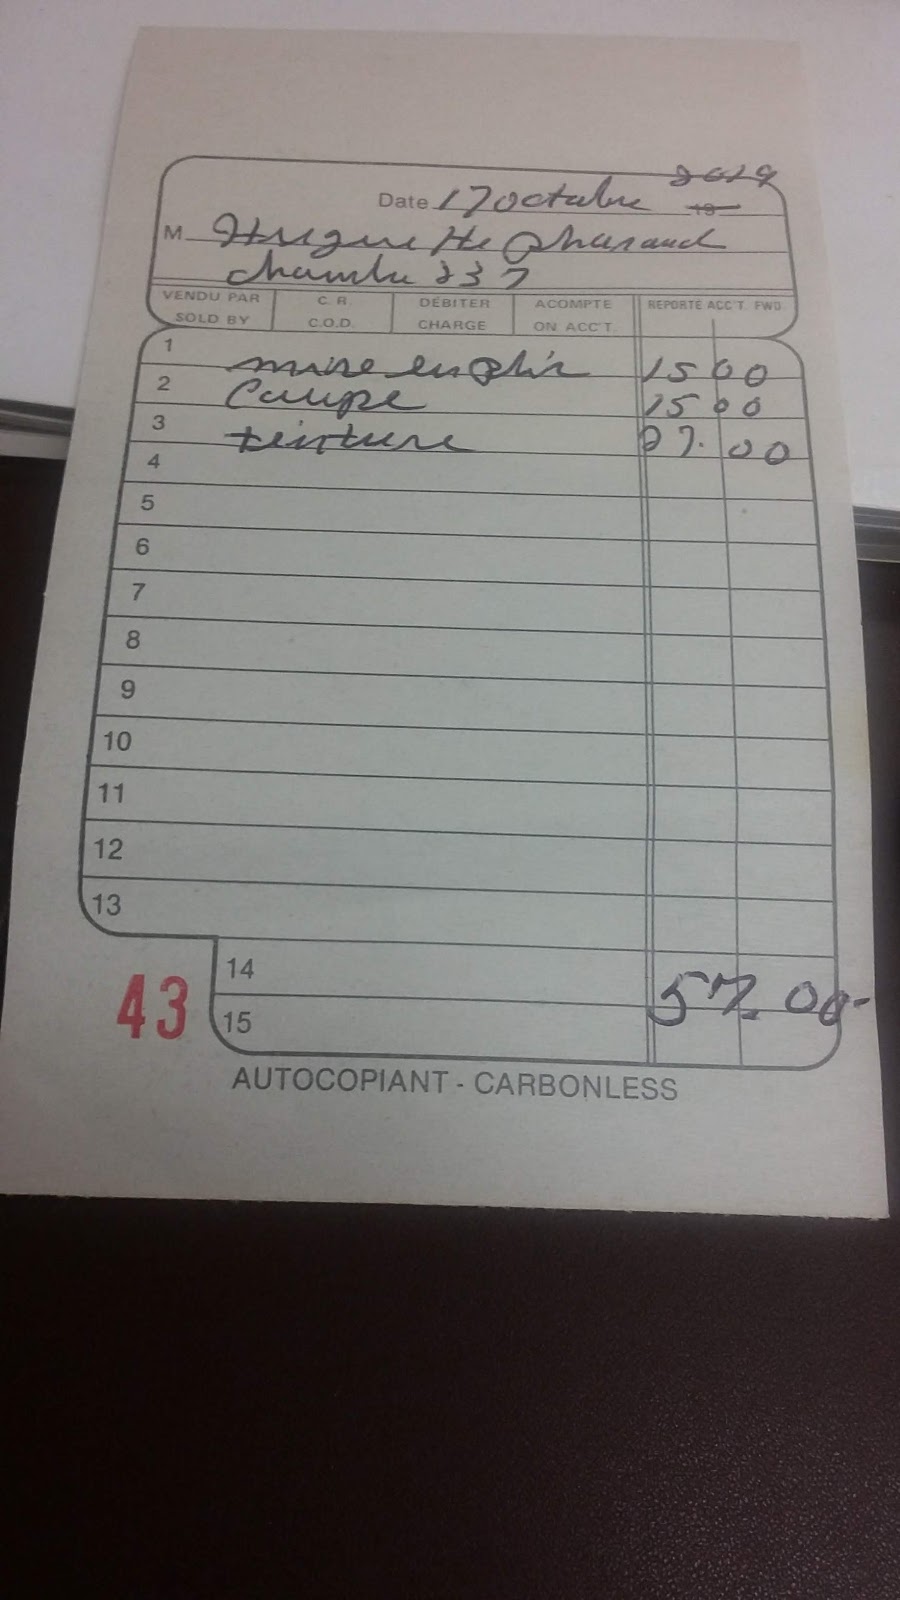 2019
Date 17 octobre 19
M. Huguette Pharand
chambre 237
VENDU PAR SOLD BY C.R. C.O.D. DÉBITER CHARGE ACOMPTE ON ACC'T. REPORTÉ ACC'T. FWD.
1 mise en plis 15 00
2 Coupe 15 00
3 teinture 27. 00
4
5
6
7
8
9
10
11
12
13
14 57. 00
15
43
AUTOCOPIANT - CARBONLESS